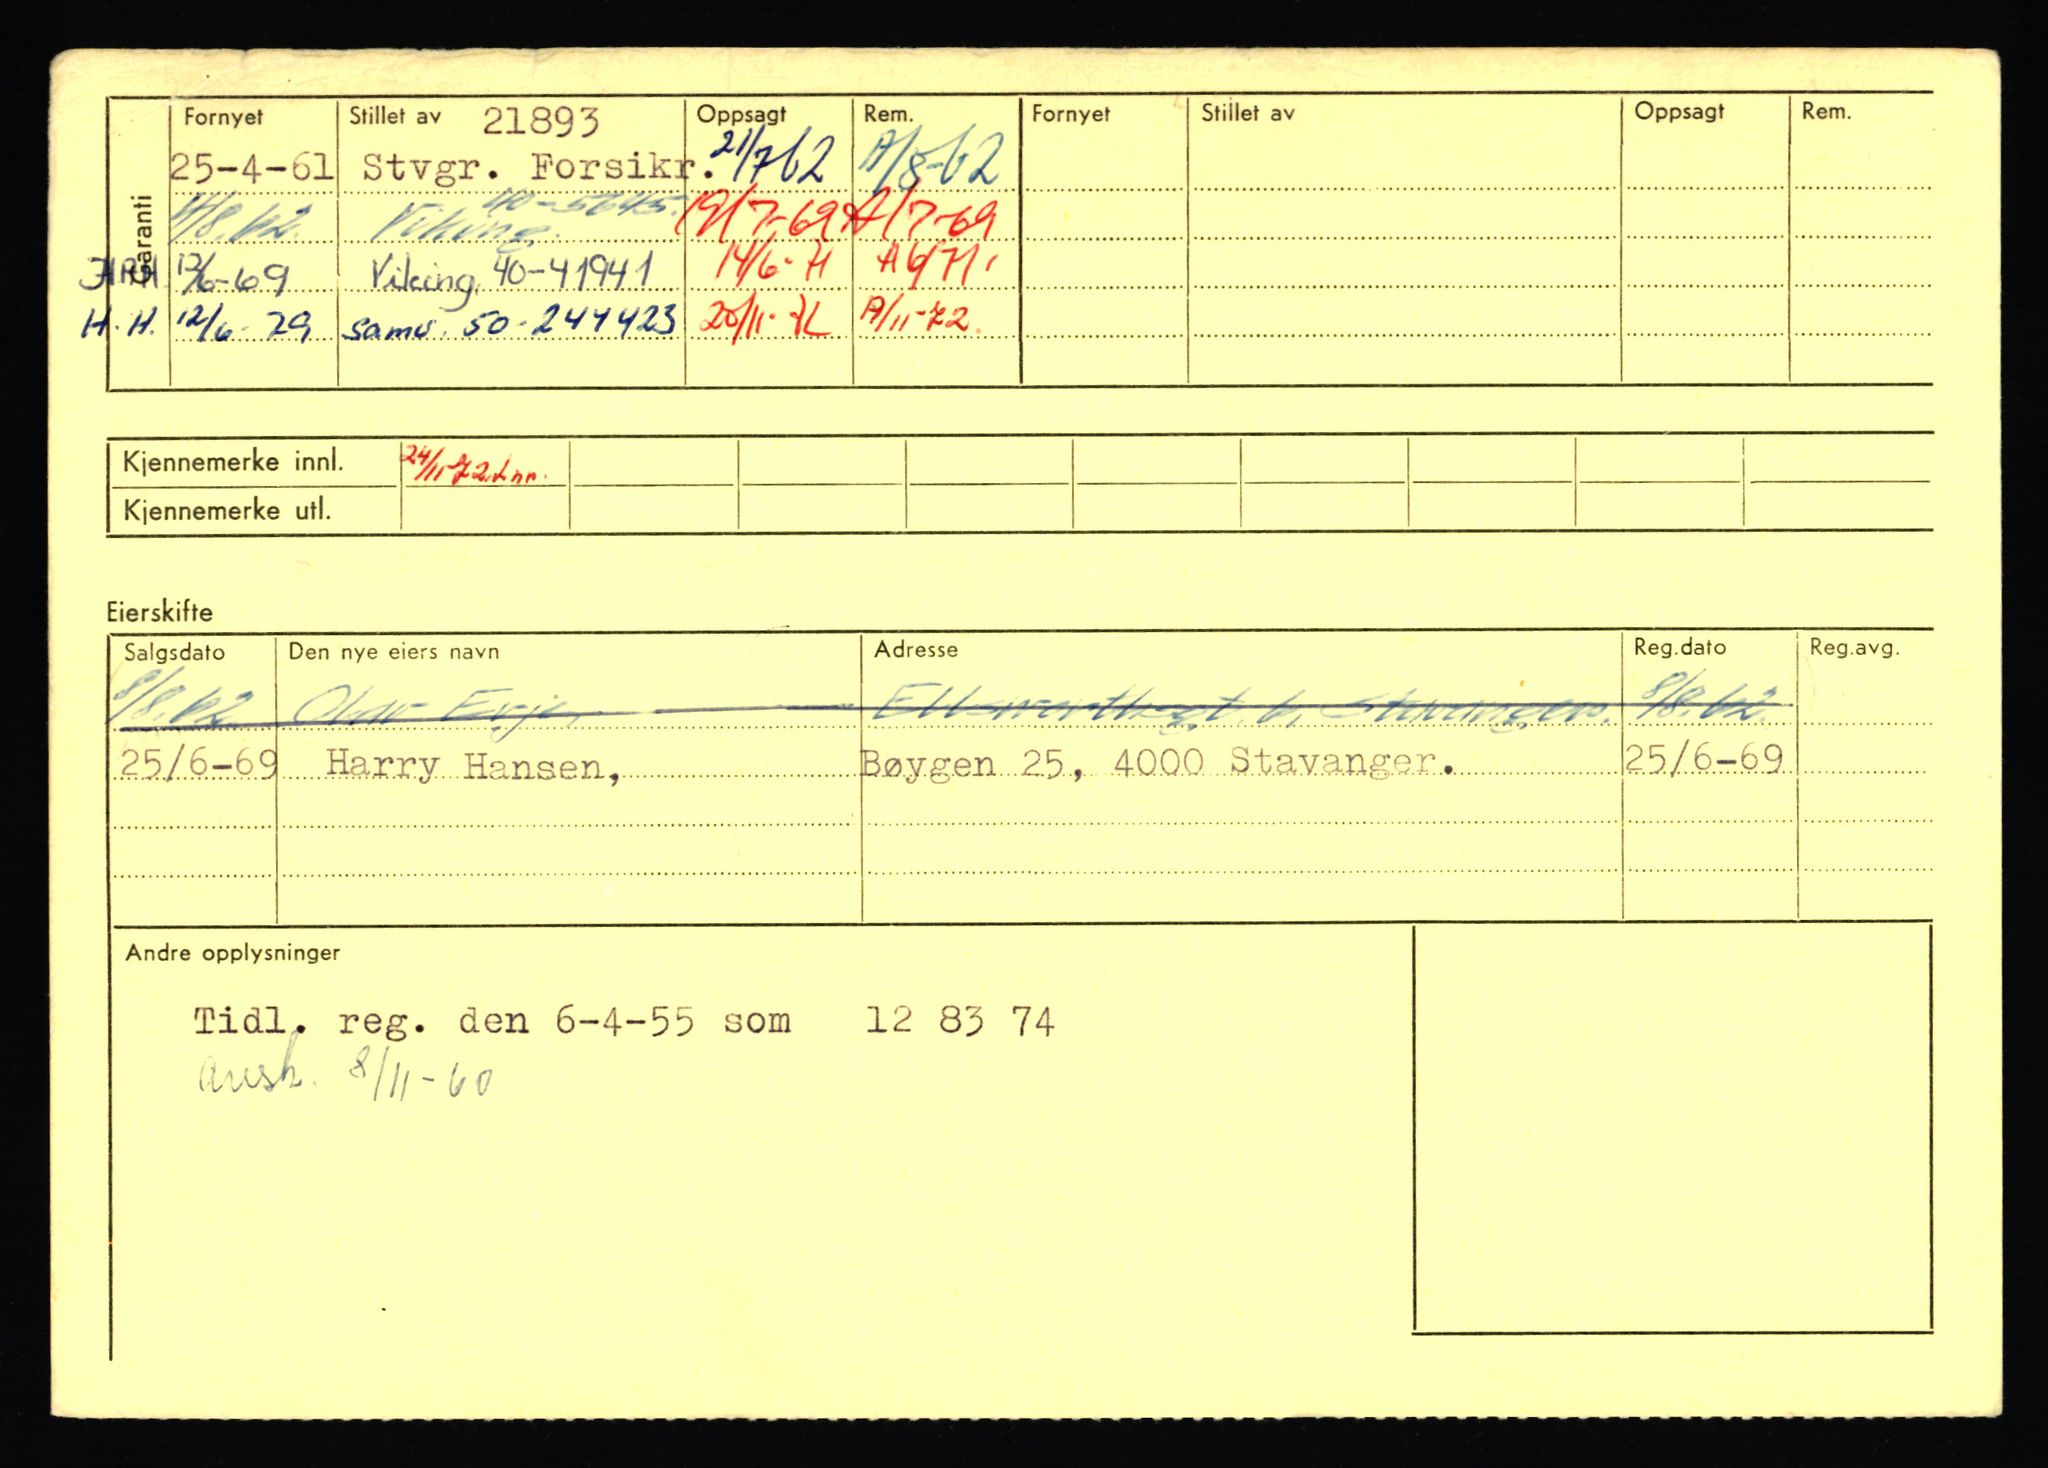 Garanti
Fornyet Stillet av 21893 Oppsagt Rem. Fornyet Stillet av Oppsagt Rem.
25-4-61 Stvgr. Forsikr. 21/7 62 A/8-62
40-5645.
8.62. Viking. 19/7-69 A/7-69
12/6-69 Viking. 40-41941 14/6- A 6/71.
H.H. 12/6- samv. 50-244423 20/11- A/11-72.
Kjennemerke innl. 24/11-72.
Kjennemerke utl.
Eierskifte
Salgsdato Den nye eiers navn Adresse Reg.dato Reg.avg.
8/8.62 Olav Evje, 6, Stavanger. 8/8.62.
25/6-69 Harry Hansen, Bøygen 25, 4000 Stavanger. 25/6-69
Andre opplysninger
Tidl. reg. den 6-4-55 som 12 83 74
avsk. 8/11-60